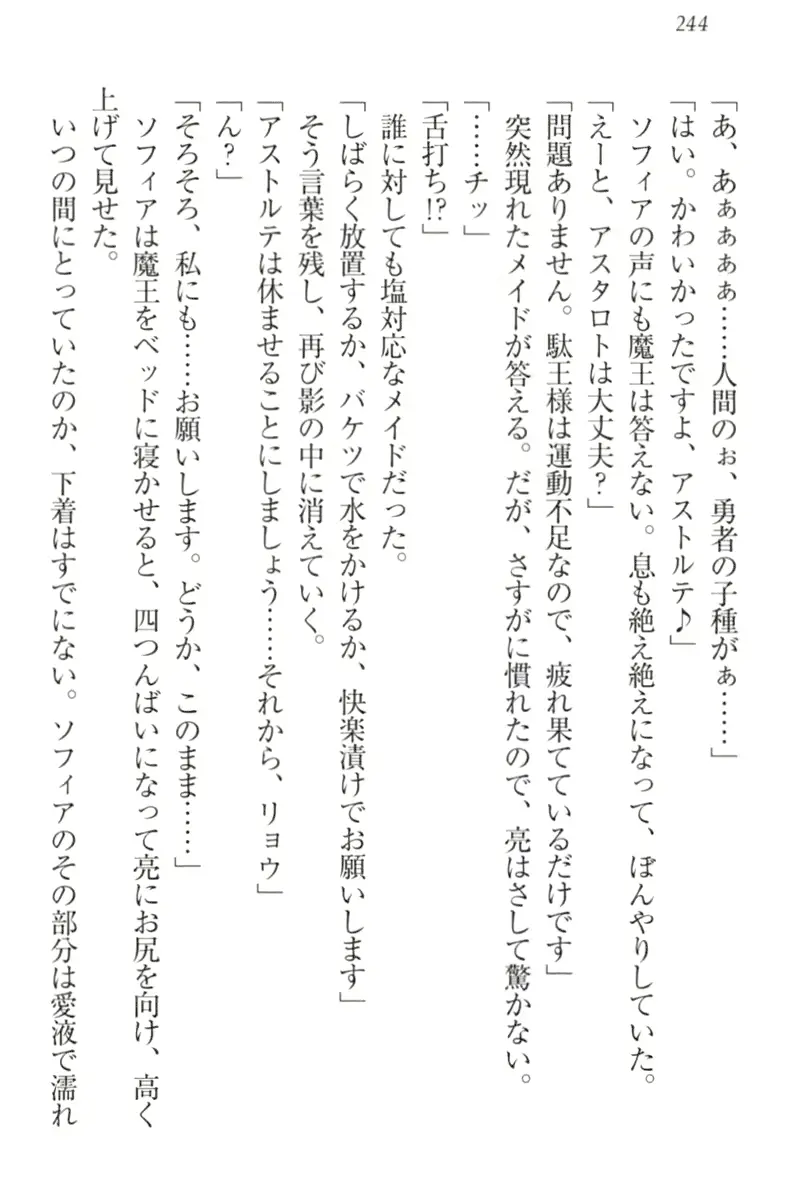 244
「あ、あぁぁぁぁ……人間のぉ、勇者の子種がぁ……」
「はい。かわいかったですよ、アストルテ♪」
ソフィアの声にも魔王は答えない。息も絶え絶えになって、ぼんやりしていた。
「えーと、アスタロトは大丈夫？」
「問題ありません。駄王様は運動不足なので、疲れ果てているだけです」
突然現れたメイドが答える。だが、さすがに慣れたので、亮はさして驚かない。
「……チッ」
「舌打ち!?」
誰に対しても塩対応なメイドだった。
「しばらく放置するか、バケツで水をかけるか、快楽漬けでお願いします」
そう言葉を残し、再び影の中に消えていく。
「アストルテは休ませることにしましょう……それから、リョウ」
「ん？」
「そろそろ、私にも……お願いします。どうか、このまま……」
ソフィアは魔王をベッドに寝かせると、四つんばいになって亮にお尻を向け、高く
上げて見せた。
いつの間にとっていたのか、下着はすでにない。ソフィアのその部分は愛液で濡れ